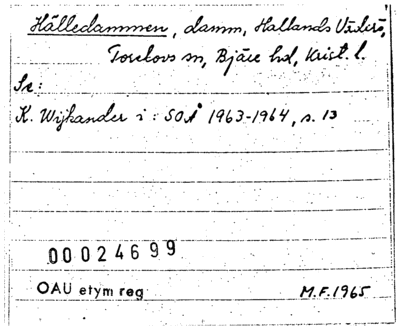 Hälledammen, damm, Hallands Väderö,
Torekovs sn, Bjäre hd, Krist. l.
Se:
K. Wijkander i: SOÅ 1963-1964, s. 13
00024699
OAU etym reg
M.F. 1965